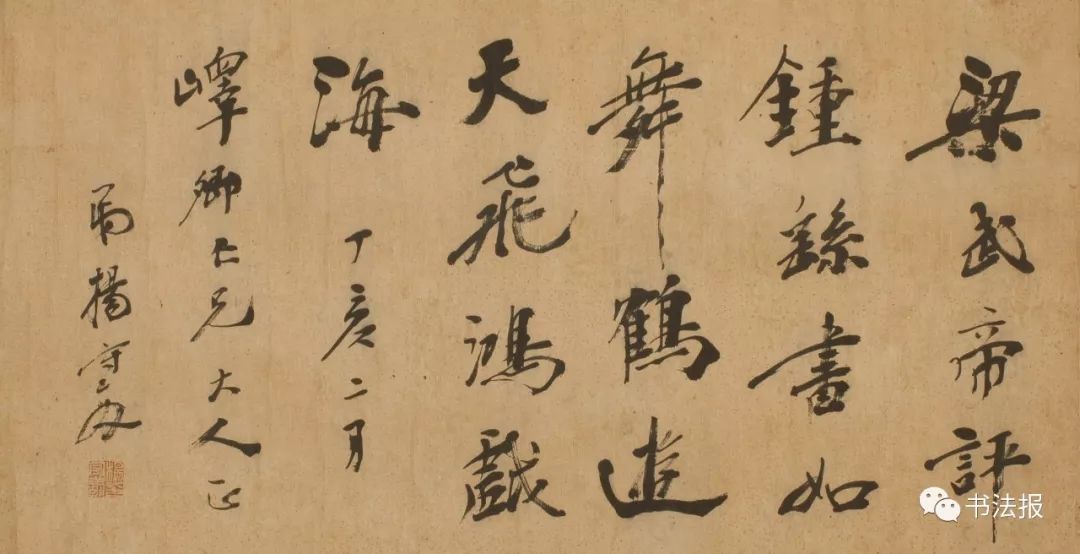 梁武帝評
鍾繇書如
舞鶴遊
天飛鴻戲
海 丁亥二月
嶧卿仁兄大人正
弟楊守敬
书法报